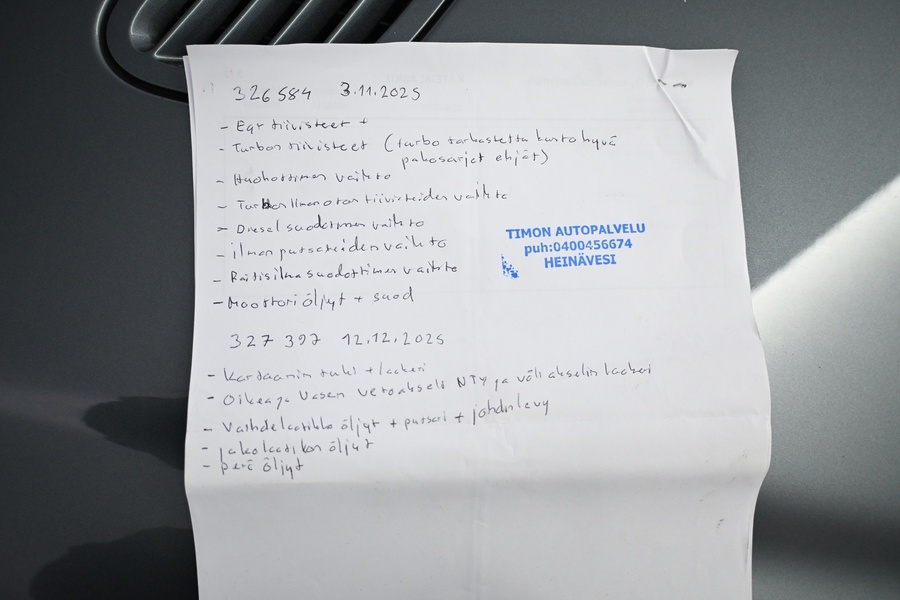 326584 3.11.2025
- Egr tiivisteet +
- Turbon tiivisteet (turbo tarkastettu kunto hyvä
pakosarjat ehjät)
- Huohottimen vaihto
- Turbon ilman otan tiivisteiden vaihto
- Diesel suodattimen vaihto
- ilman putsareiden vaihto
- Raitisilmasuodattimen vaihto
- Moottoriöljyt + suod
TIMON AUTOPALVELU
puh:0400456674
HEINÄVESI
327 397 12.12.2025
- Kardaanin tuki + laakeri
- Oikea ja Vasen vetoakseli NTY ja väli akselin laakeri
- Vaihdelaatikko öljyt + putsari + johdinlevy
- jakolaatikon öljyt
- perä öljyt